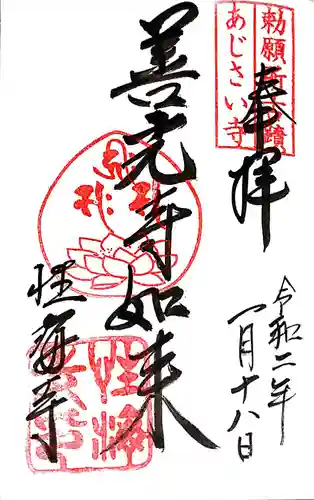 勅願所旧蹟
あじさい寺
奉拝
令和二年
一月十八日
善光寺如来
性海寺
性海